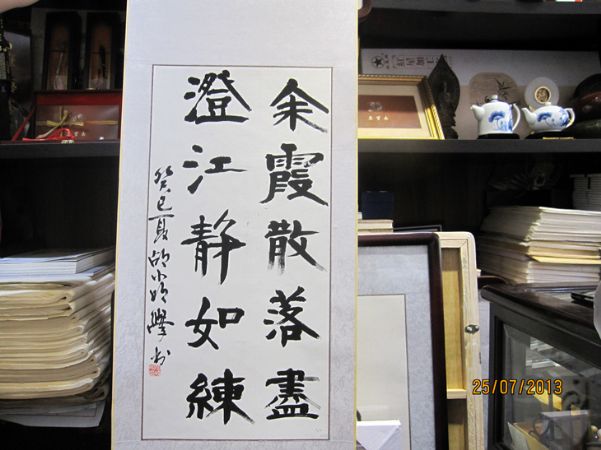 余霞散落盡
澄江静如練
癸巳夏
25/07/2013